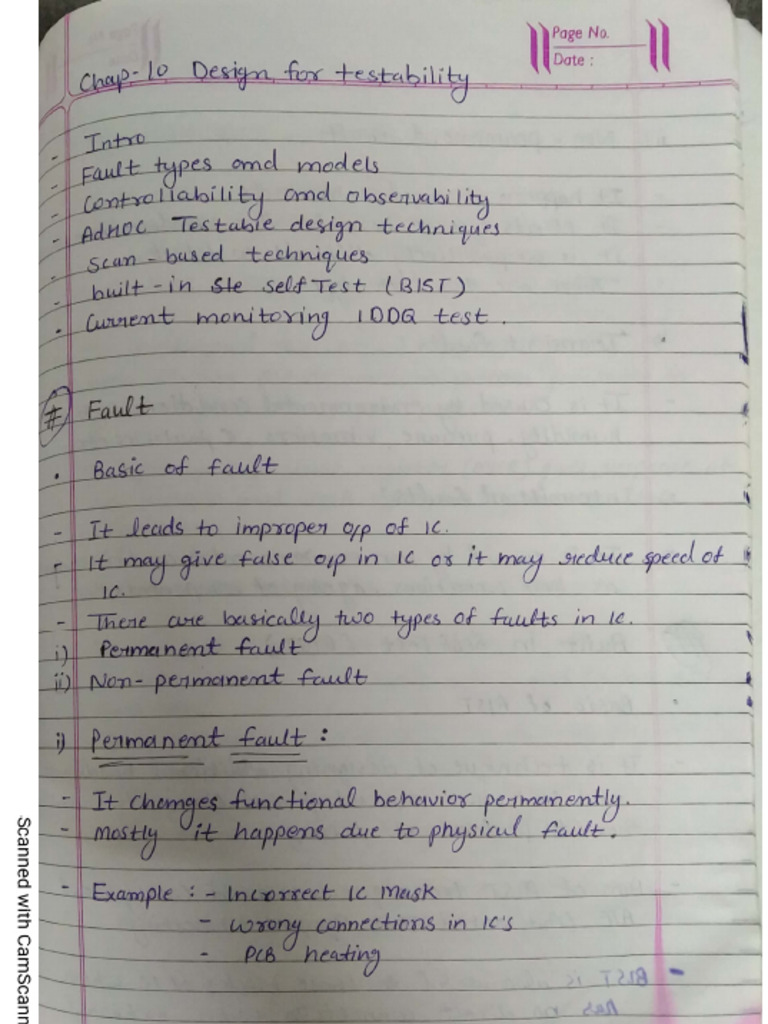 Page No.
Date :
Chap-10 Design for testability
- Intro
- Fault types and models
- Controllability and observability
- AdHOC Testable design techniques
- Scan - based techniques
- built-in Ste self Test (BIST)
. Current monitoring IDDQ test .
# Fault
. Basic of fault
- It leads to improper o/p of IC.
- It may give false o/p in IC or it may reduce speed of
IC.
- There are basically two types of faults in IC.
i) Permanent fault
ii) Non-permanent fault
i) Permanent fault :
- It changes functional behavior permanently.
- mostly it happens due to physical fault.
- Example : - Incorrect IC mask
- wrong connections in IC's
- PCB heating
Scanned with CamScann